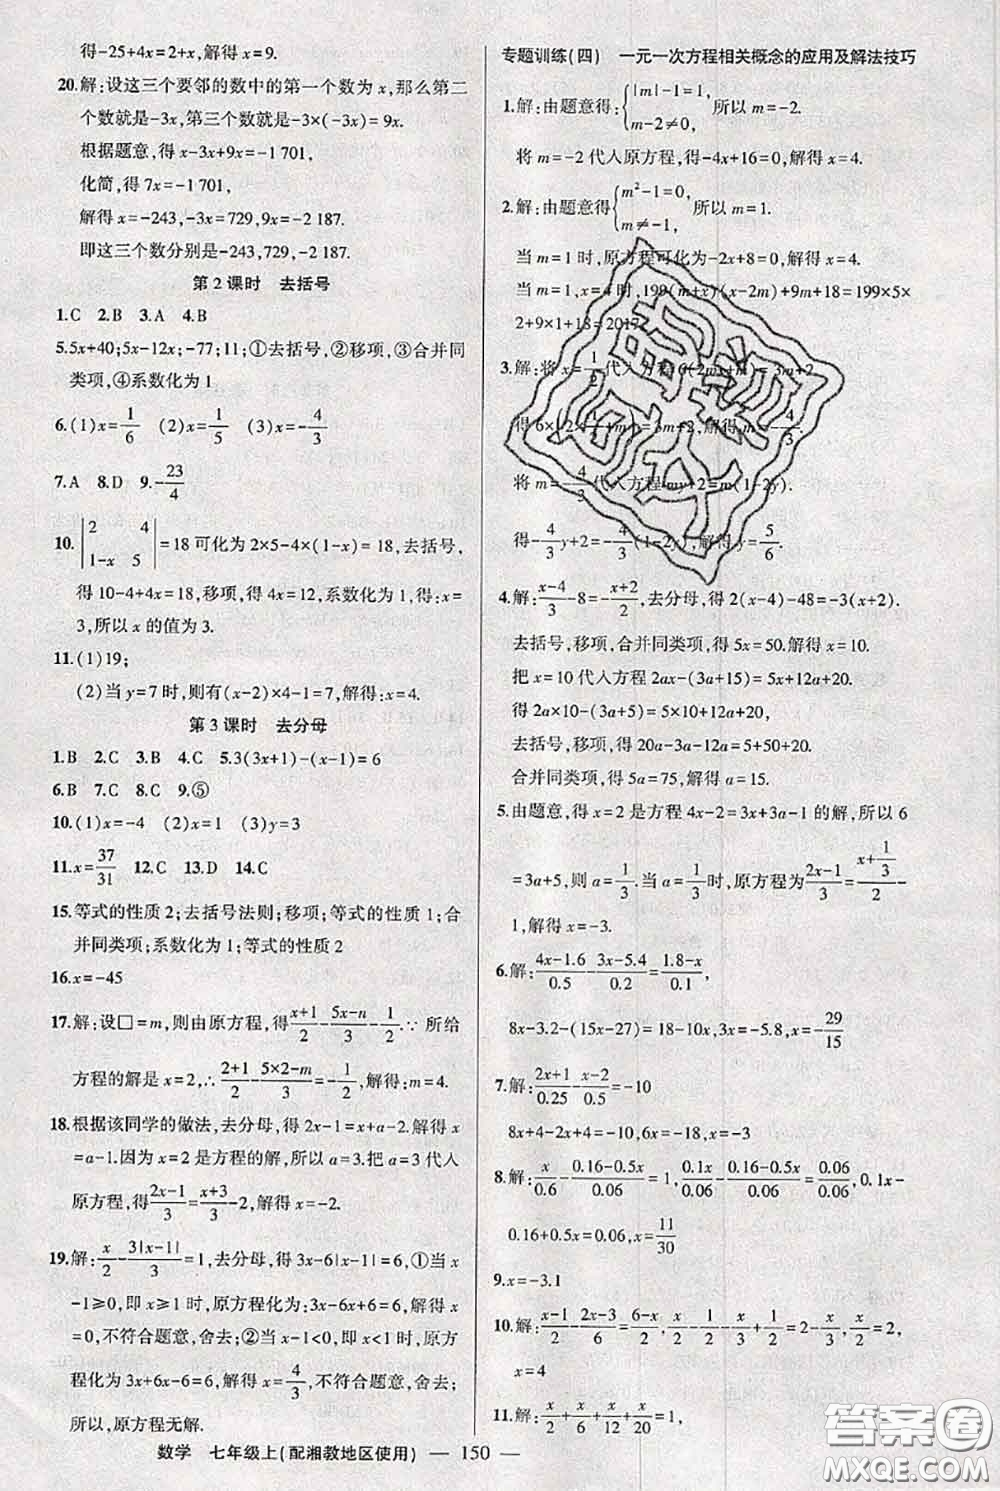 得-25+4x=2+x,解得x=9.
20.解:设这三个要邻的数中的第一个数为x,那么第二
个数就是-3x,第三个数就是-3×(-3x)=9x.
根据题意,得x-3x+9x=-1 701,
化简,得7x=-1 701,
解得x=-243,-3x=729,9x=-2 187.
即这三个数分别是-243,729,-2 187.
第2课时 去括号
1.C 2.B 3.A 4.B
5.5x+40;5x-12x;-77;11;①去括号,②移项,③合并同
类项,④系数化为1
6.(1)x=1/6 (2)x=1/5 (3)x=-4/3
7.A 8.D 9.-23/4
10.|2 4; 1-x 5|=18可化为2×5-4×(1-x)=18,去括号,
得10-4+4x=18,移项,得4x=12,系数化为1,得:x=
3,所以x的值为3.
11.(1)19;
(2)当y=7时,则有(x-2)×4-1=7,解得:x=4.
第3课时 去分母
1.B 2.C 3.B 4.C 5.3(3x+1)-(x-1)=6
6.B 7.C 8.C 9.⑤
10.(1)x=-4 (2)x=1 (3)y=3
11.x=37/31 12.C 13.D 14.C
15.等式的性质2;去括号法则;移项;等式的性质1;合
并同类项;系数化为1;等式的性质2
16.x=-45
17.解:设□=m,则由原方程,得(x+1)/2-(5x-n)/3=-1/2.∵所给
方程的解是x=2,∴(2+1)/2-(5×2-m)/3=-1/2,解得:m=4.
18.根据该同学的做法,去分母,得2x-1=x+a-2.解得x
=a-1.因为x=2是方程的解,所以a=3.把a=3代人
原方程,得(2x-1)/3=(x+3)/3-2,解得x=-2.
19.解:x/2-3|x-1|/3=1,去分母,得3x-6|x-1|=6,①当x
-1≥0,即x≥1时,原方程化为:3x-6x+6=6,解得x
=0,不符合题意,舍去;②当x-1<0,即x<1时,原方
程化为3x+6x-6=6,解得x=4/3,不符合题意,舍去;
所以,原方程无解.
专题训练(四) 一元一次方程相关概念的应用及解法技巧
1.解:由题意得:{|m|-1=1, m-2≠0,所以m=-2.
将m=-2代人原方程,得-4x+16=0,解得x=4.
2.解:由题意得{m²-1=0, m≠-1,所以m=1.
当m=1时,原方程可化为-2x+8=0,解得x=4.
当m=1,x=4时,199(m+x)(x-2m)+9m+18=199×5×
2+9×1+18=2017.
3.解:将x=1/2代人方程6(2mx+m)=3m+2,
得6×(2×1/2m+m)=3m+2,解得m=4/3.
将m=4/3代人方程my+2=m(1-2y).
得-4/3y+2=-4/3(1-2y),解得y=5/6.
4.解:(x-4)/3-8=-(x+2)/2,去分母,得2(x-4)-48=-3(x+2).
去括号,移项,合并同类项,得5x=50.解得x=10.
把x=10代人方程2ax-(3a+15)=5x+12x+20,
得2a×10-(3a+5)=5×10+12×10+20,
去括号,移项,得20a-3a-12a=5+50+20.
合并同类项,得5a=75,解得a=15.
5.由题意,得x=2是方程4x-2=3x+3a-1的解,所以6
=3a+5,则a=1/3.当a=1/3时,原方程为(2x-1)/3=(x+1/3)/2-
1,解得x=-3.
6.解:(4x-1.6)/0.5-(3x-5.4)/0.2=(1.8-x)/0.1,
8x-3.2-(15x-27)=18-10x,3x=-5.8,x=-29/15
7.解:(2x+1)/0.25-(x-2)/0.5=-10
8x+4-2x+4=-10,6x=-18,x=-3
8.解:x/0.6-(0.16-0.5x)/0.06=1,0.1x/0.06-(0.16-0.5x)/0.06=0.06/0.06,0.1x-
0.16+0.5x=0.06,x=11/30
9.x=-3.1
10.解:(x-1)/2-(2x-3)/6=(6-x)/12,x/2-1/2-x/3+1/2=2-x/3,x/2=2,
x=4
11.解:x/2+x/6+x/12+x/20=1,
数学 七年级上(配湘教地区使用) — 150 —
答案圈
MXQE.COM